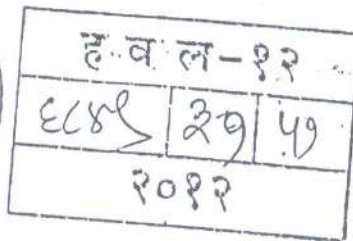 ह व ल-१२
६८४९ २७ ५७
२०१२